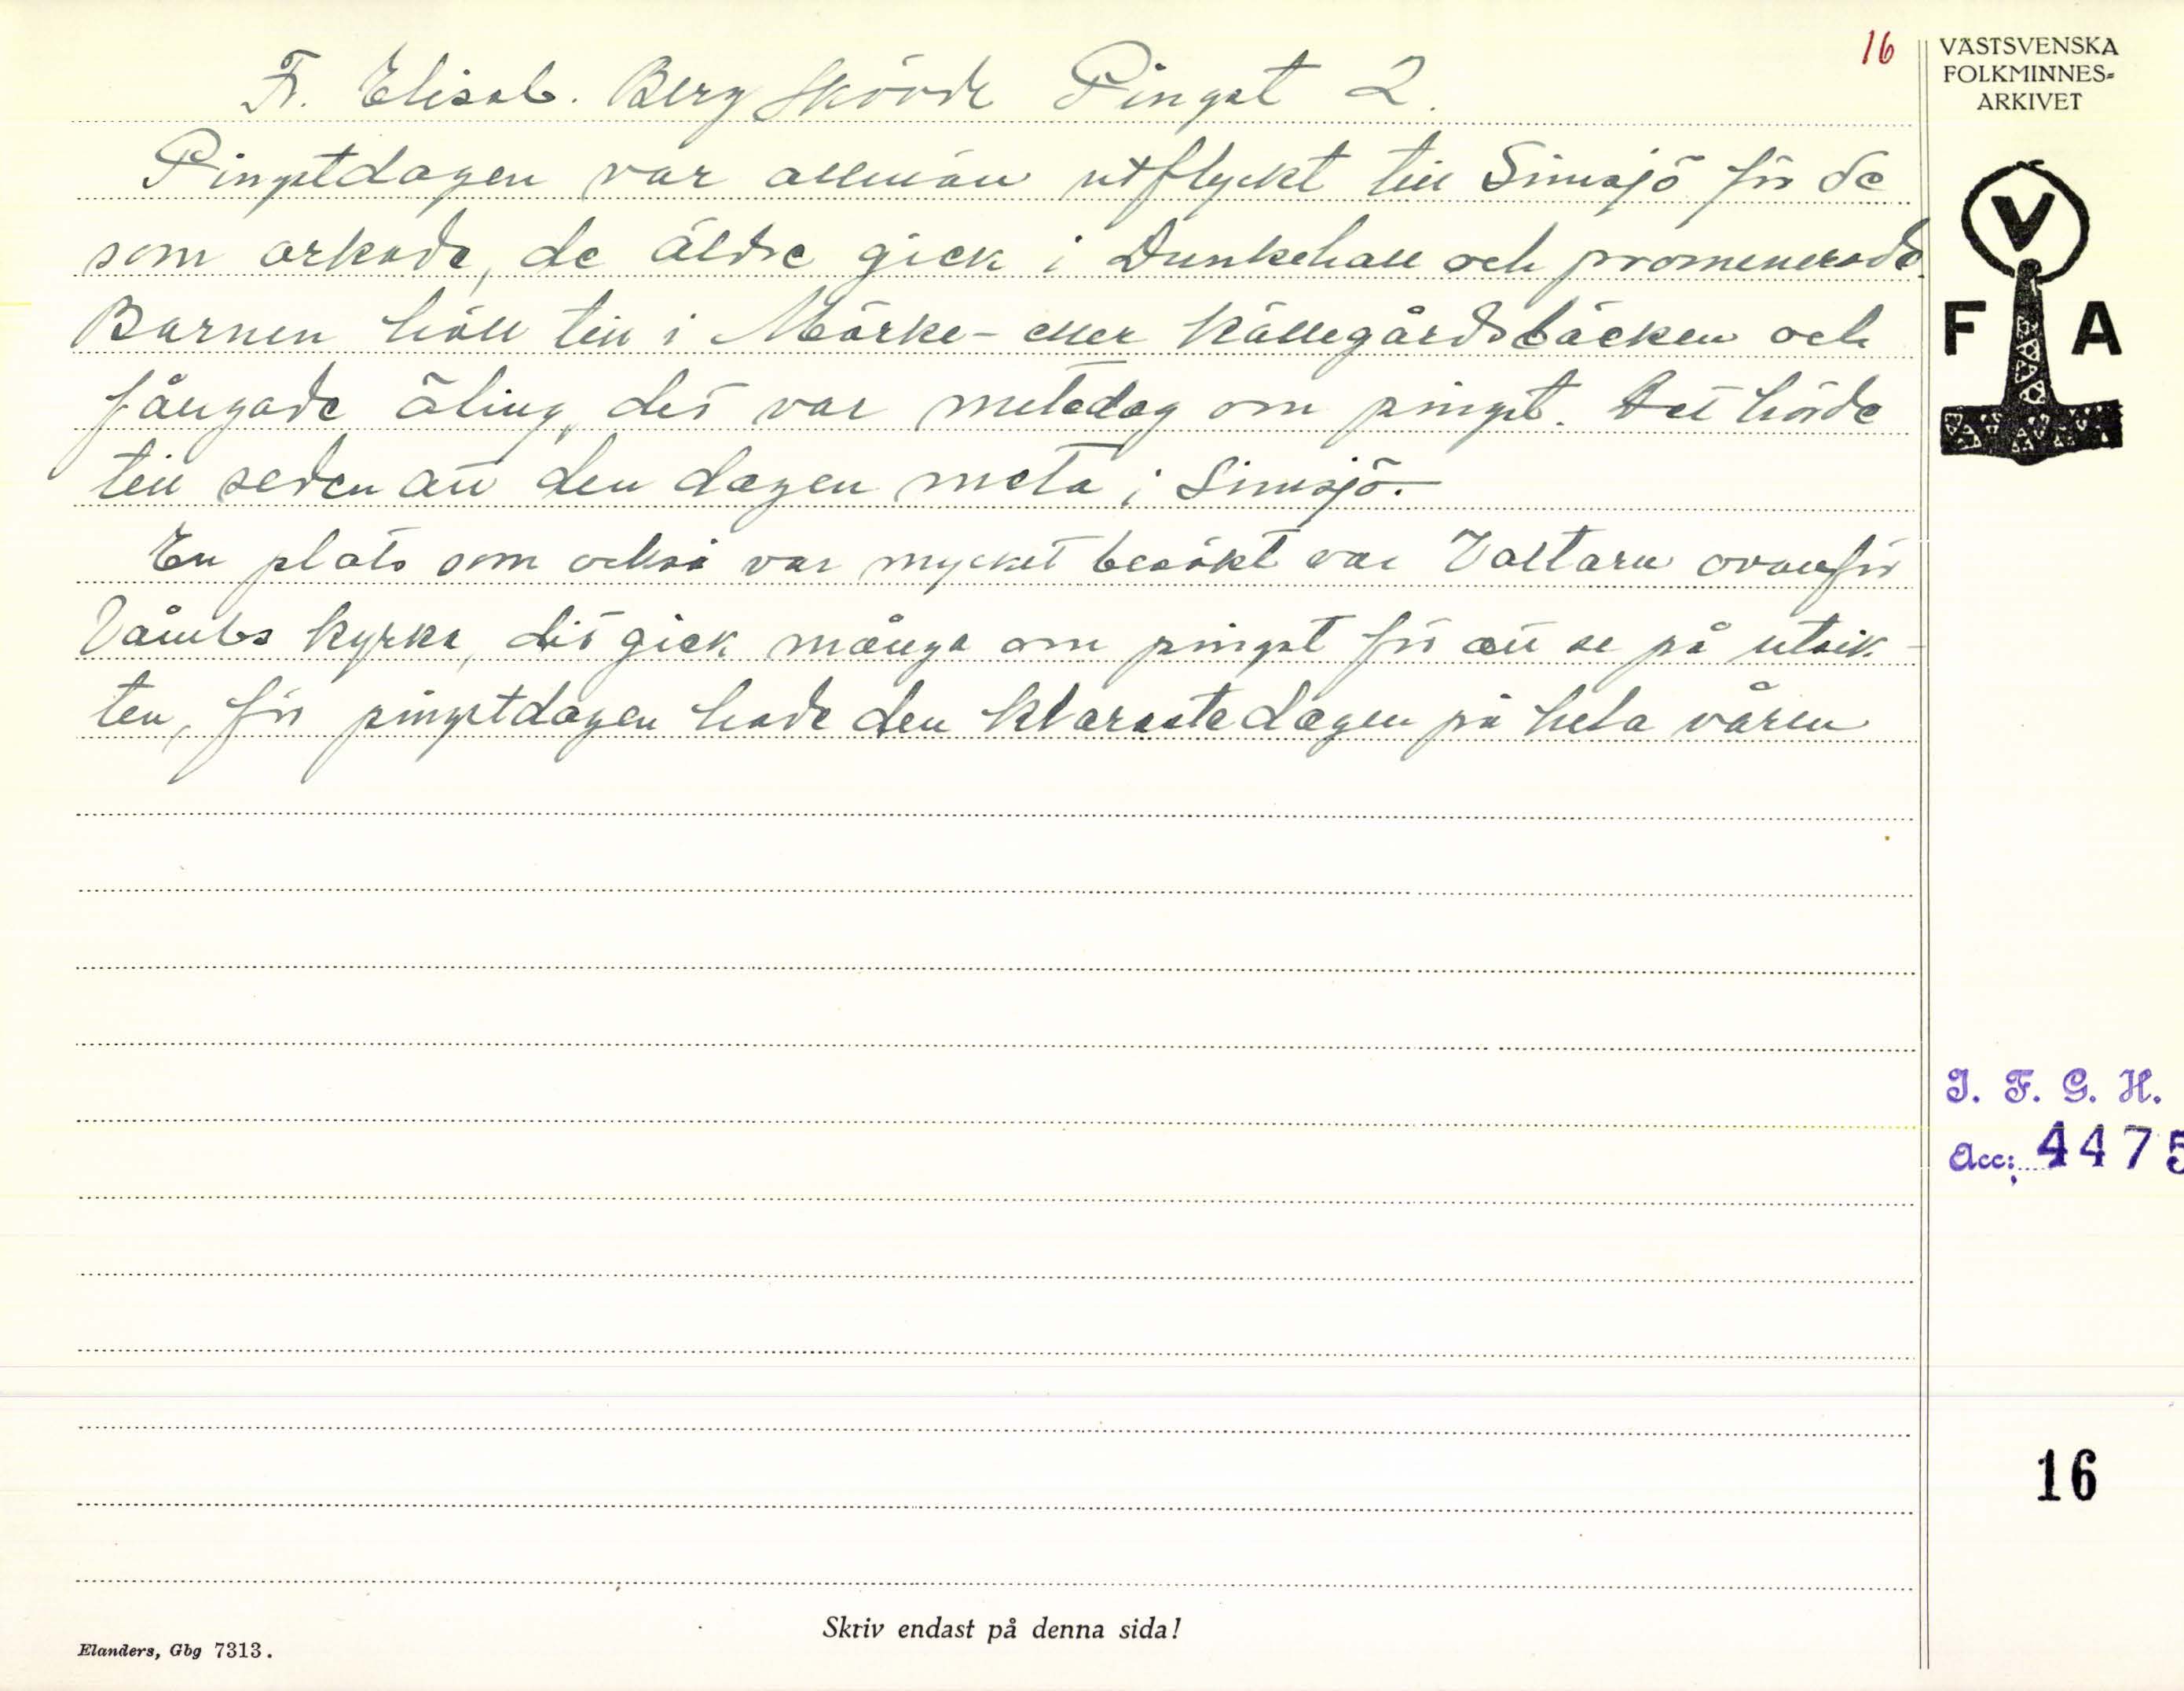 16
Fr. Elisab. Berg Skövde Pingst 2.
Pingstdagen var allmän utflykt till Simsjö för de
som orkade, de äldre gick i Dunkehall och promenerade.
Barnen höll till i Mörke- eller Källegårdsbäcken och
fångade äling, det var metedag om pingst. Det hörde
till seden att den dagen meta i Simsjö.-
En plats som också var mycket besökt var Valtarn ovanför
Våmbs kyrka, dit gick många om pingst för att se på utsik-
ten, för pingstdagen hade den klaraste dagen på hela våren
VÄSTSVENSKA
FOLKMINNES-
ARKIVET
V
F A
I. F. G. H.
Acc: 4475
16
Skriv endast på denna sida!
Elanders, Gbg 7313.